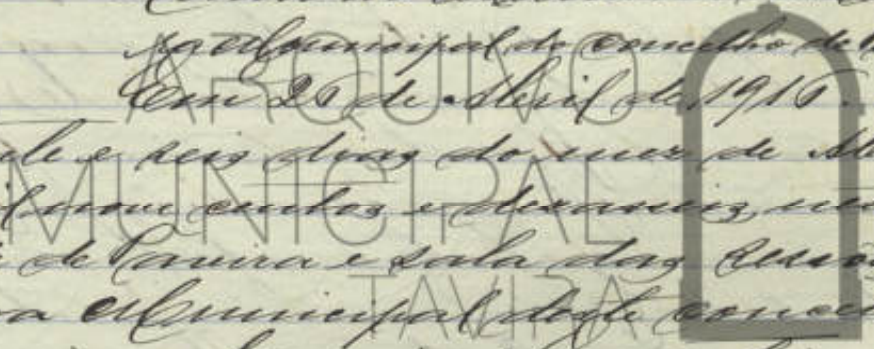 ra Municipal do concelho de
Em 26 de Abril de 1916.
te e seis dias do mez de
mil nove centos e dezaseis, nes
de Tavira e sala das Sessões
ra Municipal deste conce
ARQUIVO
MUNICIPAL
TAVIRA